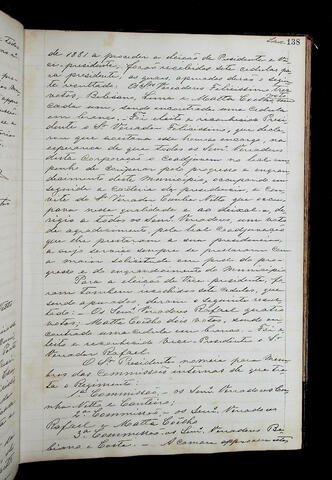 138
de 1881 a proceder a eleição de Presidente e Vi-
ce-presidente, forão recebidas sete cedulas pa-
ra presidente, as quaes, apuradas derão o segin-
te resultado: O Sr. Vereador Felicissimo tres
votos, Barbiano, Lima e Matta Coelho, um
cada um, sendo encontrada uma cedula
em branco. Foi eleito e reconhecido Presi-
dente o Sr. Vereador Felicissimo, que decla-
rou que aceitava este honroso cargo, na
esperança de que todos os Senrs. Vereadores
desta Corporação o coadjuvem no leal em-
penho de cooperar pelo progresso e engran-
decimento deste Municipio, occupando em
seguida a cadeira da presidencia, a con-
vite do Sr. Vereador Cunha Netto que occu-
pava nesse qualidade e ao deixal-a, di-
rigio a todos os Senrs. Vereadores, um voto
de agradecimento, pela leal coadjuvação
que lhe prestaram a sua presidencia,
a mais solicitude em prol do pro-
gresso e do engrandecimento do Municipio
Para a eleição de Vice presidente, fo-
ram tambem recebidas sete cedulas, que
sendo apuradas, deram o seguinte resul-
tado: Os Senrs. Vereadores Rafael quatro
votos; Matta Coelho dois votos, sendo en-
contrado uma cedula em branco. Foi e-
leito e reconhecido Vice-Presidente o Sr.
Vereador Rafael.
O Sr. Presidente nomeia para Mem-
bros das Commissões internas de que tra-
ta o Regimento:
1ª Commissão - os Senrs. Vereadores Cu-
nha Netto e Canteiro;
2ª Commissão - os Senrs. Vereadores
Rafael e Matta Coelho
3ª Commissão os Senrs. Vereadores Bar-
biano e Costa. - A Camara approva estas